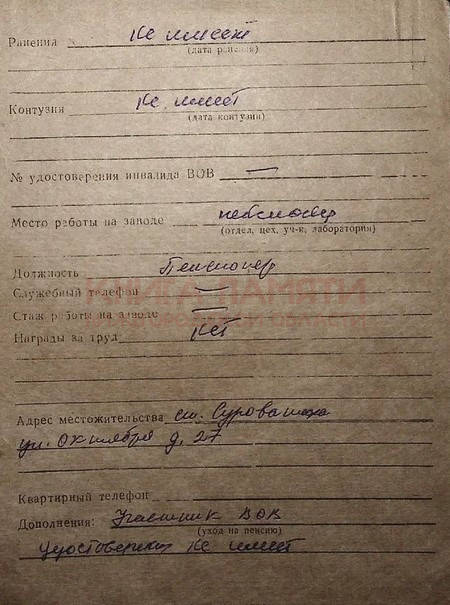 Ранения Не имеет
(дата ранения)
Контузия Не имеет
(дата контузии)
№ удостоверения инвалида ВОВ —
Место работы на заводе пенсионер
(отдел, цех, уч-к, лаборатория)
Должность Пенсионер
КНИГА ПАМЯТИ
Служебный телефон —
Стаж работы на заводе —
Награды за труд Нет
Адрес местожительства ст. Суроватиха
ул. Октября д. 27
Квартирный телефон
Дополнения: Участник ВОВ
(уход на пенсию)
Удостоверения Не имеет